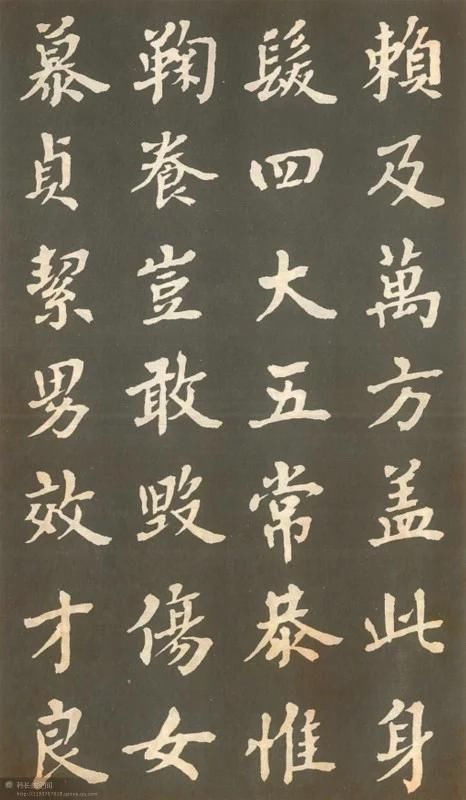 賴及萬方盖此身
髮四大五常恭惟
鞠養豈敢毀傷女
慕貞絜男效才良